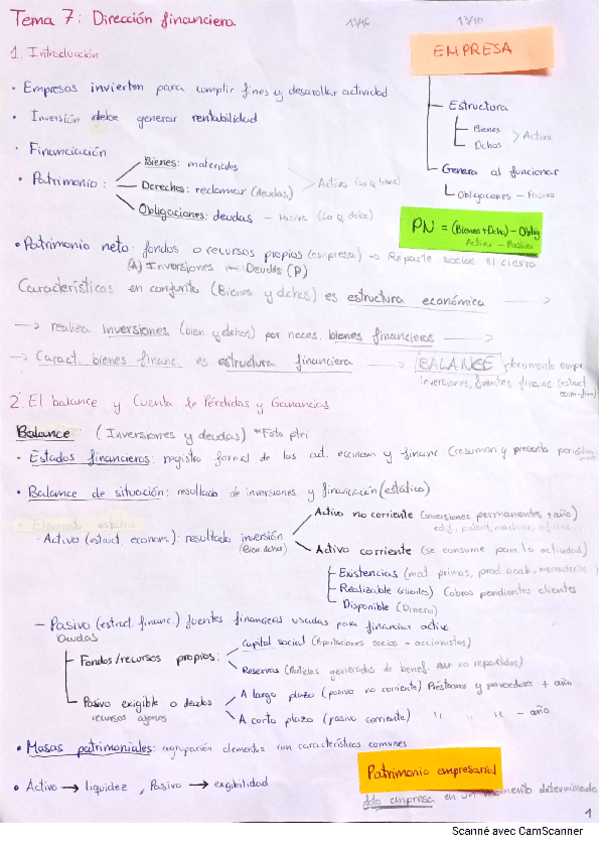 Tema 7: Dirección financiera.
13/10
EMPRESA
Estructura
Bienes
Dchos
Activo
Genera al funcionar
Obligaciones - Pasivo
PN = (Bienes + Dcho) - Oblig
Activo - Pasivo
1. Introducción
• Empresas invierten para cumplir fines y desarollar actividad
• Inversión debe generar rentabilidad
• Financiación
• Patrimonio:
Bienes: materiales
Derechos: reclamar (deudas)
Activo (lo q tiene)
Obligaciones: deudas - Pasivo (lo q debe)
• Patrimonio neto: fondos o recursos propios (empresa) → Reparte socios si cierra
(A) Inversiones — Deudas (P)
Características en conjunto (Bienes y dchos) es estructura económica →
→ realiza inversiones (bien y dchos) por neces. bienes financieros →
→ Caract. bienes financ. es estructura financiera → BALANCE documento empre.
inversiones, fuentes financ (estruct
econ-fin)
2. El balance y Cuenta de Pérdidas y Ganancias
Balance (Inversiones y deudas) *Foto ptri
• Estados financieros: registro formal de las act. econom y financ (resumen y presenta
• Balance de situación: resultado de inversiones y financiación (estático)
• Elemento
- Activo (estruct. econom.): resultado inversión
(Bien dchos)
Activo no corriente (inversiones permanentes + año)
Activo corriente (se consume para la actividad)
Existencias (mat. primas, prod. acab., mercaderías)
Realizable (clientes) Cobros pendientes clientes
Disponible (Dinero)
- Pasivo (estruct. financ.) fuentes financieras usadas para financiar activo
Deudas
Fondos/recursos propios:
Capital social (Aportaciones socios = accionistas)
Reservas (Partidas generadas de benef. aun no repartidos)
Pasivo exigible o deudas
recursos ajenos
A largo plazo (pasivo no corriente) Préstamos y proveedores + año
A corto plazo (pasivo corriente) " " " - año
• Masas patrimoniales: agrupación elementos con características comunes
• Activo → liquidez, Pasivo → exigibilidad
Patrimonio empresarial
foto empresa en un momento determinado
1
Scanné avec CamScanner